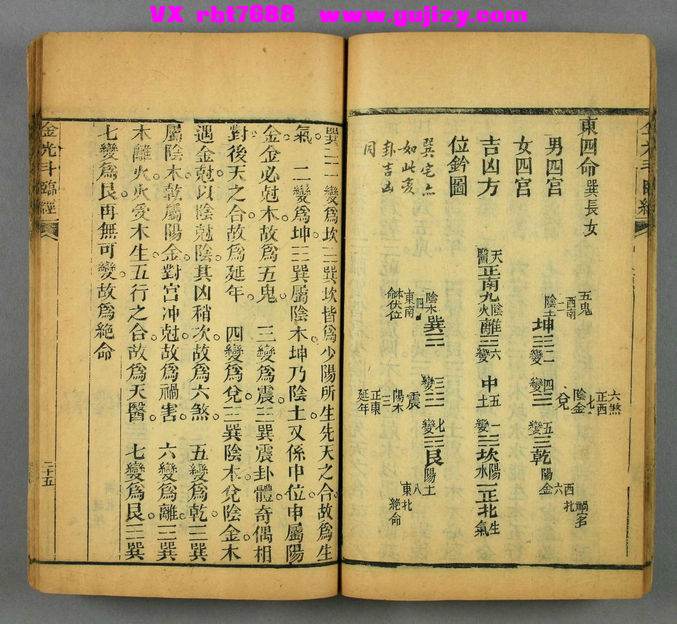 VX rbt7088 www.gujizy.com
東四命巽長女
男四宮
女四宮
吉凶方
位鈐圖
巽宅亦
如此変
卦吉凶
同
五鬼
西南
陰土坤二變
六煞
正西
七
陰金
兌四變
五變乾
陽金
六
西北
禍害
天醫
正南九陰火離六變
中五土
一變坎陽水
一正北
生氣
陰木巽
四
東南
本命伏位
三變
震
陽木
三
正東
延年
七變艮
陽土
八
東北
絕命
巽三一變爲坎三巽坎皆爲少陽所生先天之合故爲生
氣 二變爲坤三巽屬陰木坤乃陰土又係中位申屬陽
金金必尅木故爲五鬼 三變爲震三巽震卦體奇偶相
對後天之合故爲延年 四變爲兌三巽陰木兌陰金木
遇金尅以陰尅陰其凶稍次故爲六煞 五變爲乾三巽
屬陰木乾屬陽金對宮冲尅故爲禍害 六變爲離三巽
木離火火愛木生五行之合故爲天醫 七變爲艮三巽
七變爲艮再無可變故爲絕命
金光斗臨經
二十五
金光斗臨經